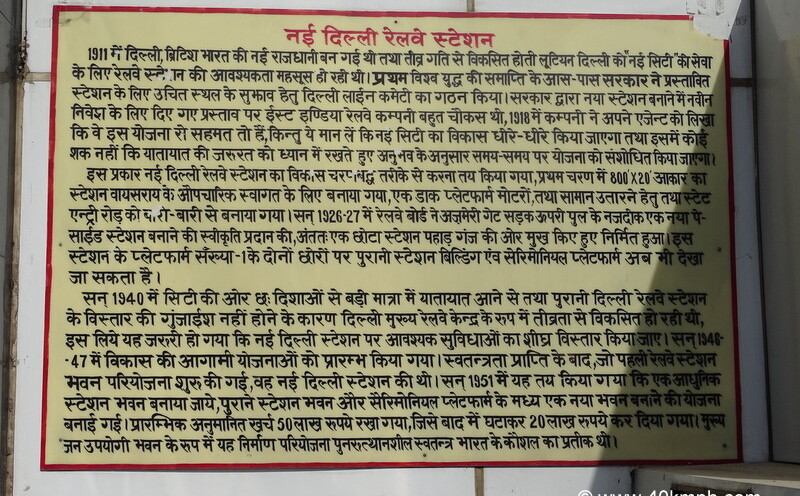 नई दिल्ली रेलवे स्टेशन
1911 में दिल्ली, ब्रिटिश भारत की नई राजधानी बन गई थी तथा तीव्र गति से विकसित होती लूटियन दिल्ली की "नई सिटी" की सेवा
के लिए रेलवे स्टेशन की आवश्यकता महसूस हो रही थी। प्रथम विश्व युद्ध की समाप्ति के आस-पास सरकार ने प्रस्तावित
स्टेशन के लिए उचित स्थल के सुझाव हेतु दिल्ली लाईन कमेटी का गठन किया। सरकार द्वारा नया स्टेशन बनाने में नवीन
निवेश के लिए दिए गए प्रस्ताव पर ईस्ट इण्डिया रेलवे कम्पनी बहुत चौकस थी, 1918 में कम्पनी ने अपने एजेन्ट को लिखा
कि वे इस योजना से सहमत तो हैं, किन्तु ये मान लें कि नई सिटी का विकास धीरे-धीरे किया जाएगा तथा इसमें कोई
शक नहीं कि यातायात की जरुरत को ध्यान में रखते हुए अनुभव के अनुसार समय-समय पर योजना को संशोधित किया जाएगा।
इस प्रकार नई दिल्ली रेलवे स्टेशन का विकास चरणबद्ध तरीके से करना तय किया गया, प्रथम चरण में 800'X20' आकार का
स्टेशन वायसराय के औपचारिक स्वागत के लिए बनाया गया, एक डाक प्लेटफार्म मोटरों, तथा सामान उतारने हेतु तथा स्टेट
एन्ट्री रोड़ को बारी-बारी से बनाया गया। सन् 1926-27 में रेलवे बोर्ड ने अजमेरी गेट सड़क ऊपरी पुल के नजदीक एक नया पे-
साईड स्टेशन बनाने की स्वीकृति प्रदान की, अंततः एक छोटा स्टेशन पहाड़ गंज की ओर मुख किए हुए निर्मित हुआ। इस
स्टेशन के प्लेटफार्म सँख्या-1 के दोनों छोरों पर पुरानी स्टेशन बिल्डिंग एंव सेरिमोनियल प्लेटफार्म अब भी देखा
जा सकता है।
सन् 1940 में सिटी की ओर छः दिशाओं से बड़ी मात्रा में यातायात आने से तथा पुरानी दिल्ली रेलवे स्टेशन
के विस्तार की गुंजाईश नहीं होने के कारण दिल्ली मुख्य रेलवे केन्द्र के रूप में तीव्रता से विकसित हो रही थी,
इस लिये यह जरुरी हो गया कि नई दिल्ली स्टेशन पर आवश्यक सुविधाओं का शीघ्र विस्तार किया जाए। सन् 1946-
-47 में विकास की आगामी योजनाओं को प्रारम्भ किया गया। स्वतन्त्रता प्राप्ति के बाद, जो पहली रेलवे स्टेशन
भवन परियोजना शुरु की गई, वह नई दिल्ली स्टेशन की थी। सन् 1951 में यह तय किया गया कि एक आधुनिक
स्टेशन भवन बनाया जाये, पुराने स्टेशन भवन और सैरिमोनियल प्लेटफार्म के मध्य एक नया भवन बनाने की योजना
बनाई गई। प्रारम्भिक अनुमानित खर्च 50 लाख रूपये रखा गया, जिसे बाद में घटाकर 20 लाख रूपये कर दिया गया। मुख्य
जन उपयोगी भवन के रूप में यह निर्माण परियोजना पुनरूत्थानशील स्वतन्त्र भारत के कौशल का प्रतीक थी।
© www.40kmph.com